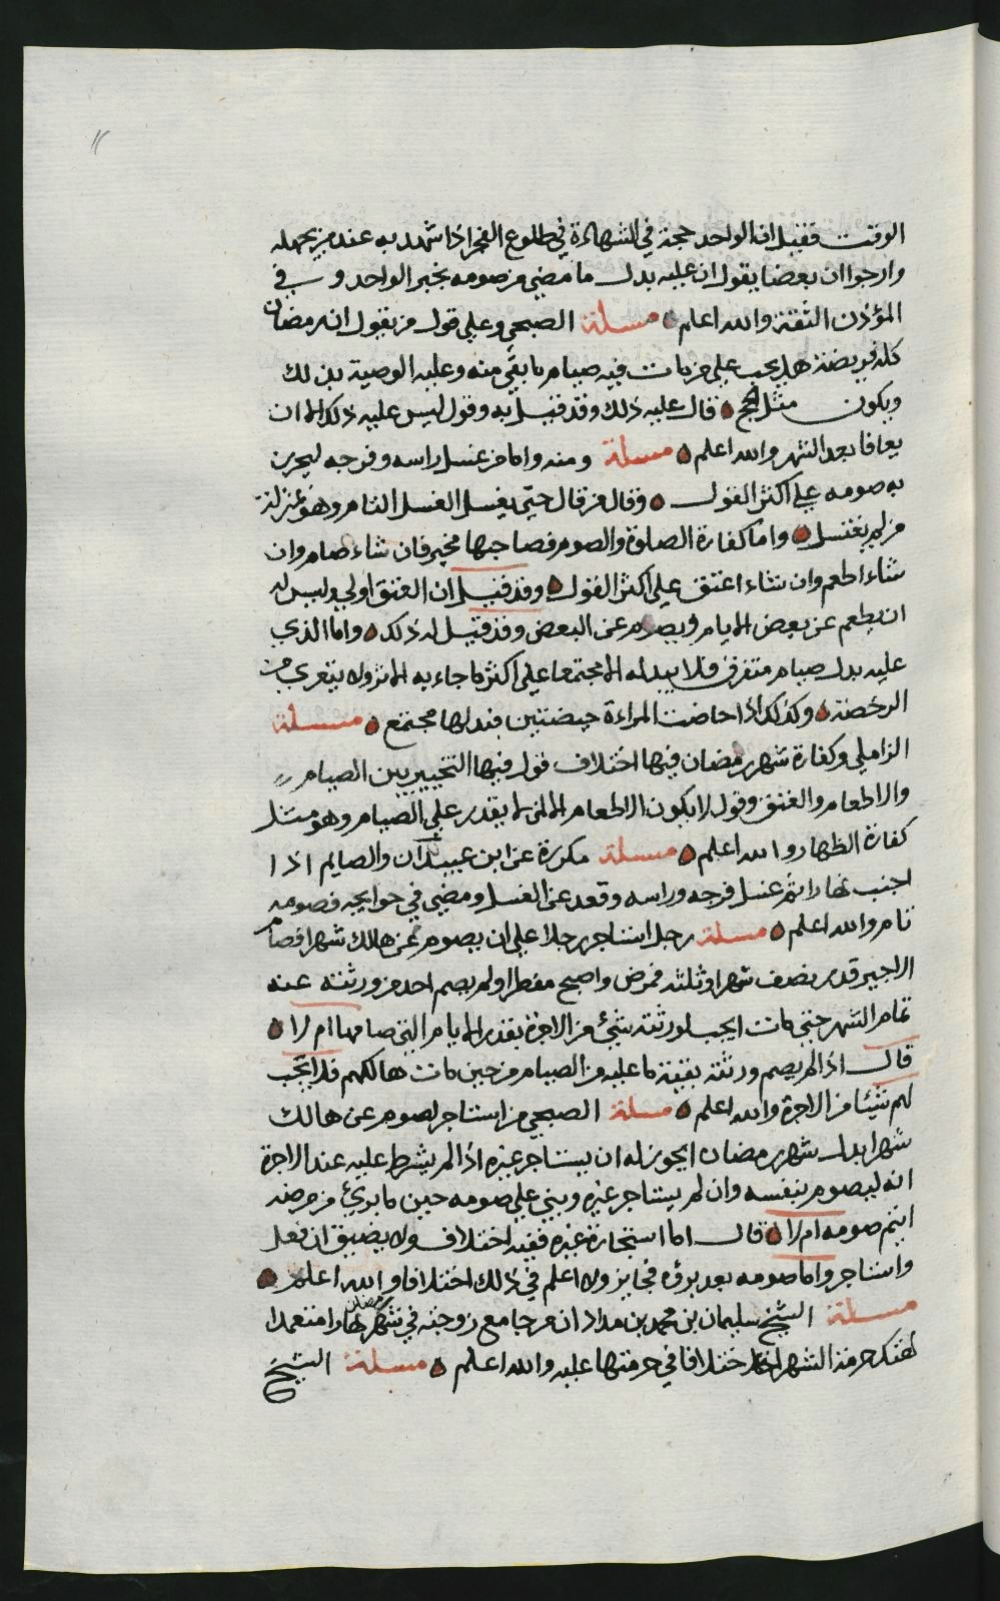 الوقت فقيل ان الواحد حجة في الشهادة في طلوع الفجر اذا شهد به عند من يجهله
وارجوا ان بعضا يقول ان عليه بدل ما مضى من صومه بخبر الواحد و في
المؤذن الثقة والله اعلم مسلة الصبحي وعلى قول من يقول ان رمضان
كله فريضة هل يجب على من مات فيه صيام ما بقي منه وعليه الوصية بذلك
ويكون مثل الحج قال عليه ذلك وقد قيل به وقول ليس عليه ذلك الا ان
يعافا بعد الشهر والله اعلم مسلة ومنه واما من غسل راسه وفرجه ليحرز
به صومه على اكثر القول وقال من قال حتى يغسل الغسل التام وهو بمنزلة
من لم يغتسل واما كفارة الصلوة والصوم فصاحبها مخير فان شاء صام وان
شاء اطعم وان شاء اعتق على اكثر القول وقد قيل ان العتق اولى وليس له
ان يطعم عن بعض الايام ويصوم عن البعض وقد قيل له ذلك واما الذي
عليه بدل صيام متفرق فلا يبدله الا مجتمعا على اكثر ما جاء به الاثر ولا يتعرى من
الرخصة وكذلك اذا حاضت المراءة حيضتين فبدلها مجتمع مسلة
الزاملي وكفارة شهر رمضان فيها اختلاف قول فيها التخيير بين الصيام
والاطعام والعتق وقول لا يكون الاطعام الا لمن لا يقدر على الصيام وهو مثل
كفارة الظهار والله اعلم مسلة مكررة عن ابن عبيدان والصايم اذا
اجنب نهارا ثم غسل فرجه وراسه وقعد عن الغسل ومضى في حوايجه فصومه
تام والله اعلم مسلة رجل استاجر رجلا على ان يصوم عن هالك شهرا فصام
الاجير قدر نصف شهر او ثلثه فمرض واصبح مفطرا ولم يصم احد من ورثته عنه
تمام الشهر حتى مات ايجب لورثته شيء من الاجرة بقدر الايام التي صامها ام لا
قال اذا لم يصم ورثته بقية ما عليه من الصيام من حين مات هالكهم فلا يجب
لهم شيئا من الاجرة والله اعلم مسلة الصبحي من استاجر لصوم عن هالك
شهرا بدل شهر رمضان ايجوز له ان يستاجر غيره اذا لم يشرط عليه عند الاجرة
انه ليصوم بنفسه وان لم يستاجر غيره وبنى على صومه حين ما برئ من مرضه
ايتم صومه ام لا قال اما استجارة غيره ففيه اختلاف ولا يضيق ان فعل
واستاجر واما صومه بعد برؤه فجايز ولا اعلم في ذلك اختلافا والله اعلم
مسلة الشيخ سليمان بن محمد بن مداد ان من جامع زوجته في شهر رمضان نهارا متعمدا
لهتك حرمة الشهر اختلافا في حرمتها عليه والله اعلم مسلة الشيخ